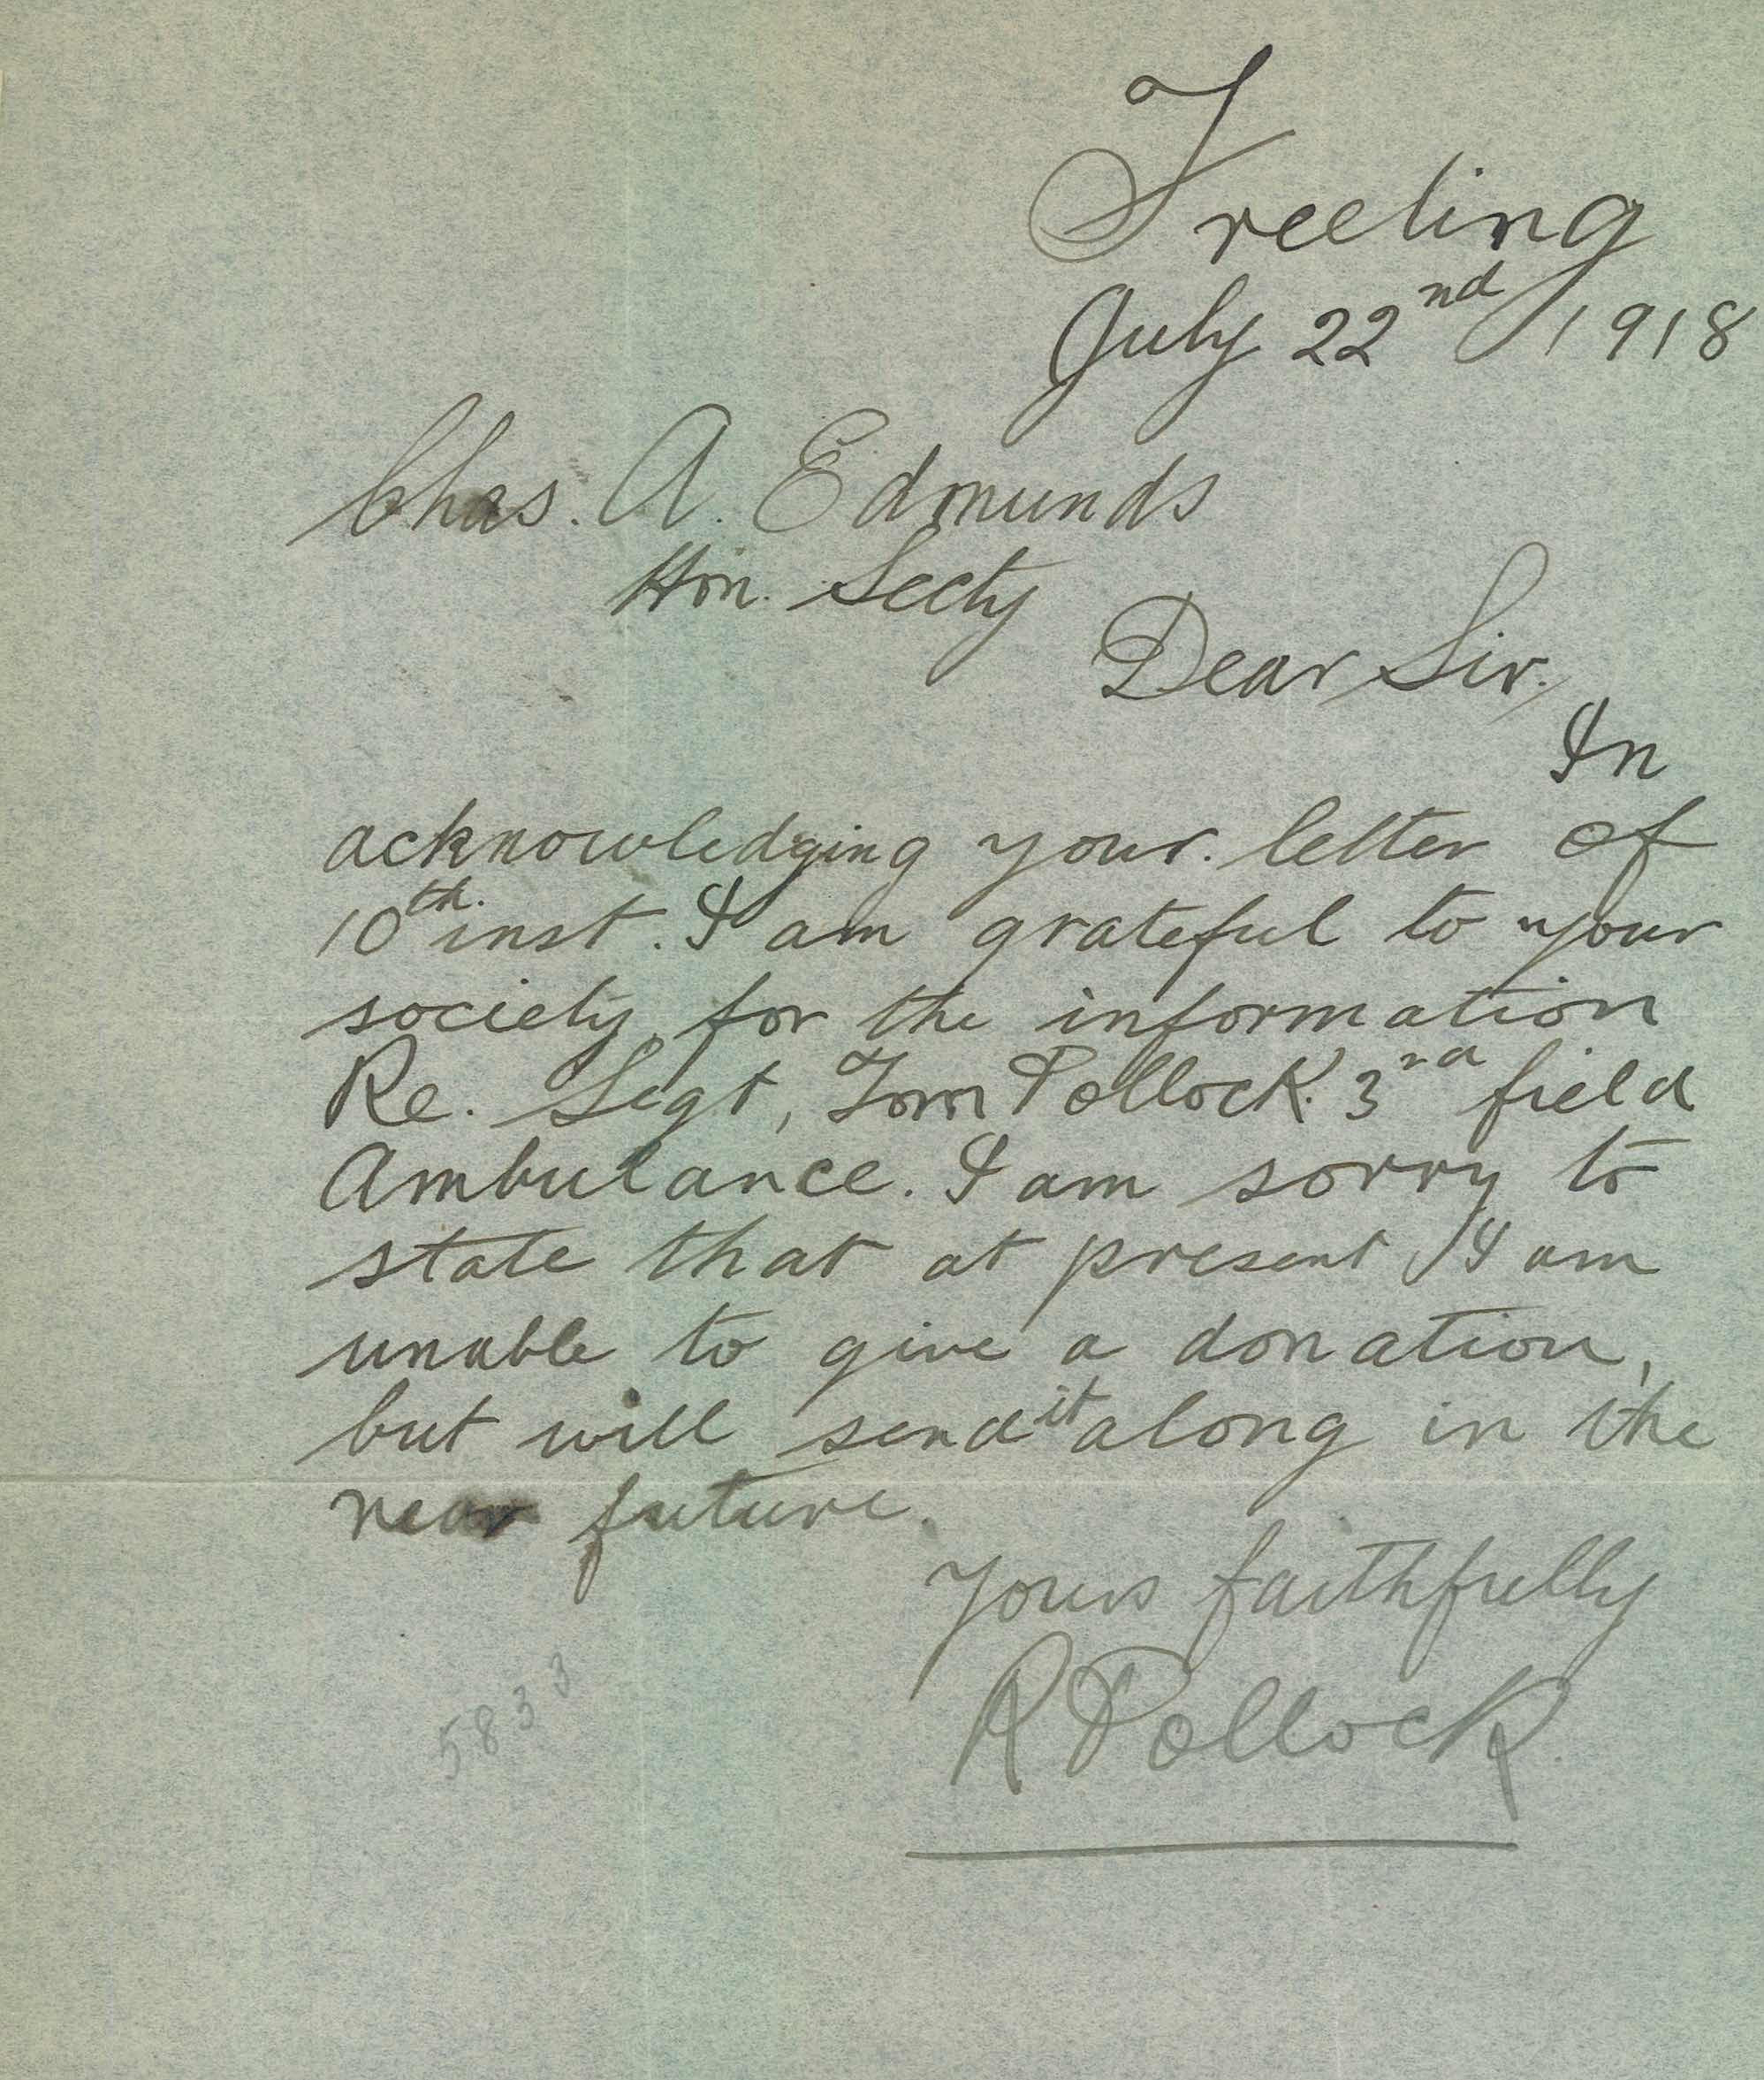 Freeling
July 22nd 1918
Chas. A. Edmunds
Hon. Secty
Dear Sir.,
In
acknowledging your letter of
10th. inst. I am grateful to your
society for the information
Re. Segt, Tom Pollock. 3rd field
Ambulance. I am sorry to
state that at present I am
unable to give a donation,
but will send it along in the
near future.
Yours faithfully
R Pollock
5833